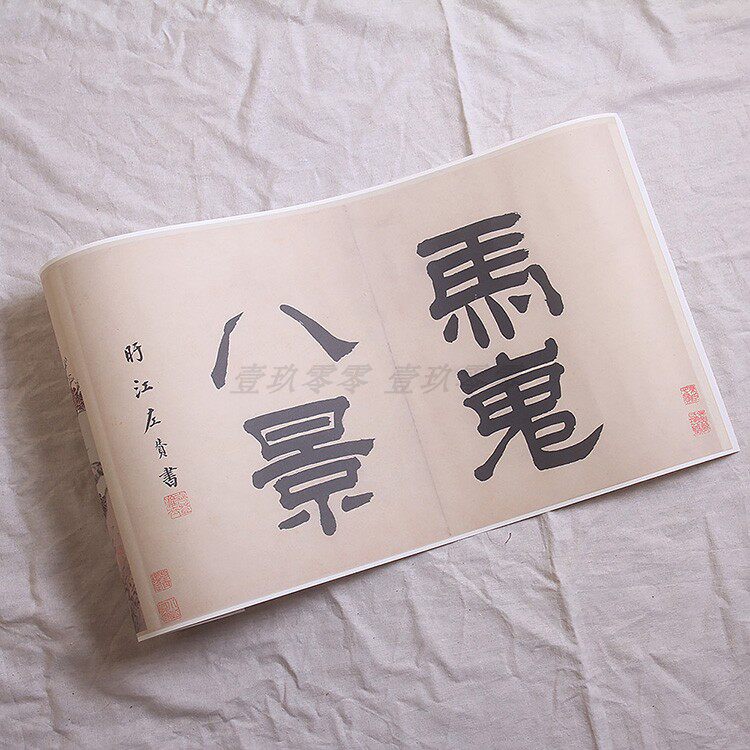 馬嵬
八景
盱江左贊書
壹玖零零 壹玖